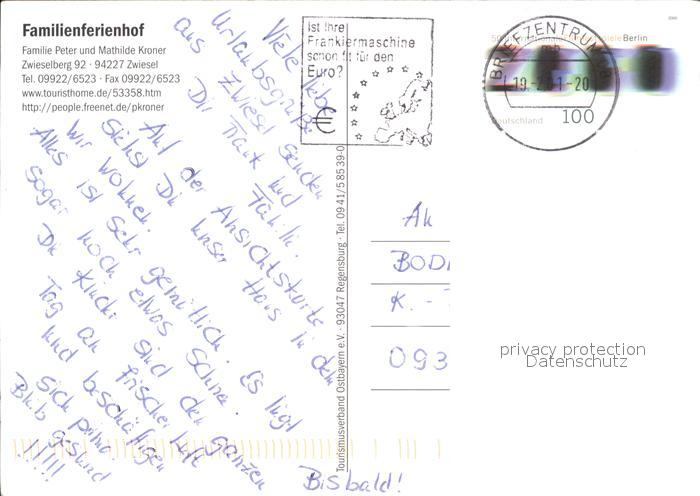 Familienferienhof
Familie Peter und Mathilde Kroner
Zwieselberg 92 · 94227 Zwiesel
Tel. 09922/6523 · Fax 09922/6523
www.touristhome.de/53358.htm
http://people.freenet.de/pkroner
Viele liebe
Urlaubsgrüße
aus Zwiesel senden
Dir Traut und
Auf der Ansichtskarte
siehst Du unser Haus in dem
wir wohnen.
Alles ist sehr gemütlich. Es liegt
sogar noch etwas Schnee.
Die Kinder sind den ganzen
Tag an frischer Luft
und beschäftigen
sich prima
Bleib gesund
!!!!!!
Bis bald!
Tourismusverband Ostbayern e.V. · 93047 Regensburg · Tel. 09 41/5 85 39-0
Ist Ihre
Frankiermaschine
schon fit für den
Euro?
€
BRIEFZENTRUM
mb
Berlin
Deutschland
100
An
BODI
K. -
093
privacy protection
Datenschutz